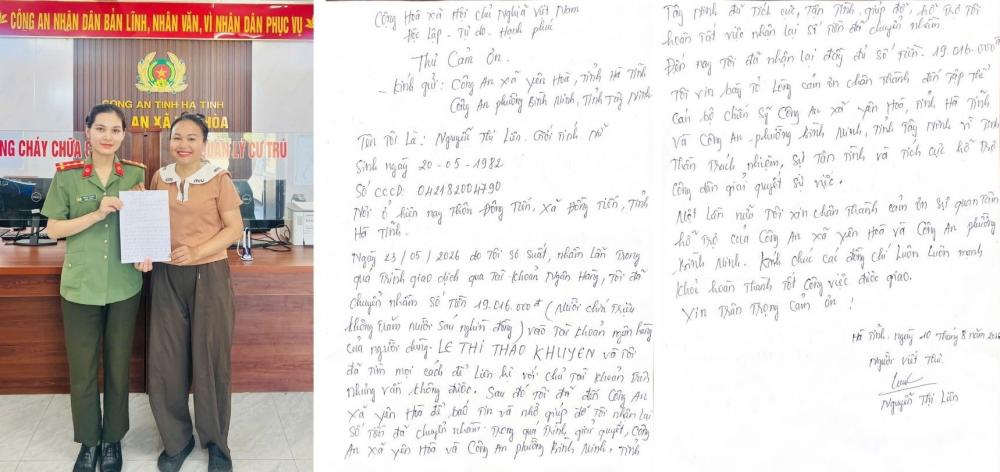 CÔNG AN NHÂN DÂN BẢN LĨNH, NHÂN VĂN, VÌ NHÂN DÂN PHỤC VỤ
CÔNG AN TỈNH HÀ TĨNH
AN XÃ HÒA
NG CHÁY CHỮA
QUẢN LÝ CƯ TRÚ
DELL
Cộng Hoà xã Hội Chủ Nghĩa Việt Nam
Độc Lập - Tự do - Hạnh phúc
Thư Cảm Ơn.
- Kính gửi: Công An xã Yên Hoà, Tỉnh Hà Tĩnh
Công An phường Bình Minh, Tỉnh Tây Ninh
Tên Tôi Là: Nguyễn Thị Liên. Giới Tính Nữ
Sinh ngày 20-05-1982
Số CCCD: 042182004790
Nơi ở hiện nay Thôn Đông Tiến, Xã Đông Tiến, Tỉnh
Hà Tĩnh.
Ngày 23/05/2026 do Tôi Sơ Suất, nhầm lẫn Trong
quá Trình giao dịch qua Tài khoản Ngân Hàng, Tôi đã
chuyển nhầm Số Tiền 19.016.000đ (Mười chín Triệu
không Trăm mười sáu nghìn đồng) vào Tài khoản ngân hàng
của người dùng. LE THI THAO KHUYEN và Tôi
đã tìm mọi cách để Liên hệ với chủ Tài khoản Trên
nhưng vẫn không được. Sau đó Tôi đã đến Công An
Xã Yên Hoà để báo Tin và nhờ giúp đỡ Tôi nhận lại
Số Tiền đã chuyển nhầm. Trong quá Trình giải quyết, Công
An Xã Yên Hoà và Công An phường Bình Minh, Tỉnh
Tây Ninh đã Tích cực, Tận Tình, giúp đỡ, hỗ Trợ Tôi
hoàn Tất việc nhận lại số Tiền đã chuyển nhầm.
Đến nay Tôi đã nhận lại đầy đủ số Tiền. 19.016.000đ
Tôi xin bày Tỏ Lòng cảm ơn chân thành đến Tập thể
cán bộ chiến sỹ Công An xã Yên Hoà, Tỉnh Hà Tĩnh
và Công An phường Bình Minh, Tỉnh Tây Ninh vì Tinh
Thần Trách nhiệm, Sự Tận Tình và Tích cực hỗ Trợ
Công dân giải quyết sự việc.
Một Lần nữa Tôi xin chân Thành cảm ơn sự quan Tâm
hỗ Trợ của Công An xã Yên Hoà và Công An phường
Bình Minh. Kính chúc các đồng chí Luôn Luôn mạnh
khoẻ hoàn Thành Tốt Công việc được giao.
Xin Trân Trọng Cảm ơn !
Hà Tĩnh. ngày 10 tháng 8 năm 2026
Người viết Thư
Nguyễn Thị Liên